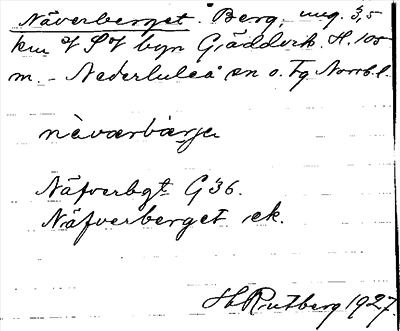 Näverberget. Berg, ung. 3,5
km V S V byn Gäddvik. H. 105
m. - Nederluleå sn o. Tg Norrb.l.
nàvərbärjə
Näfverbgt G 36.
Näfverberget ek.
H Rutberg 1927.